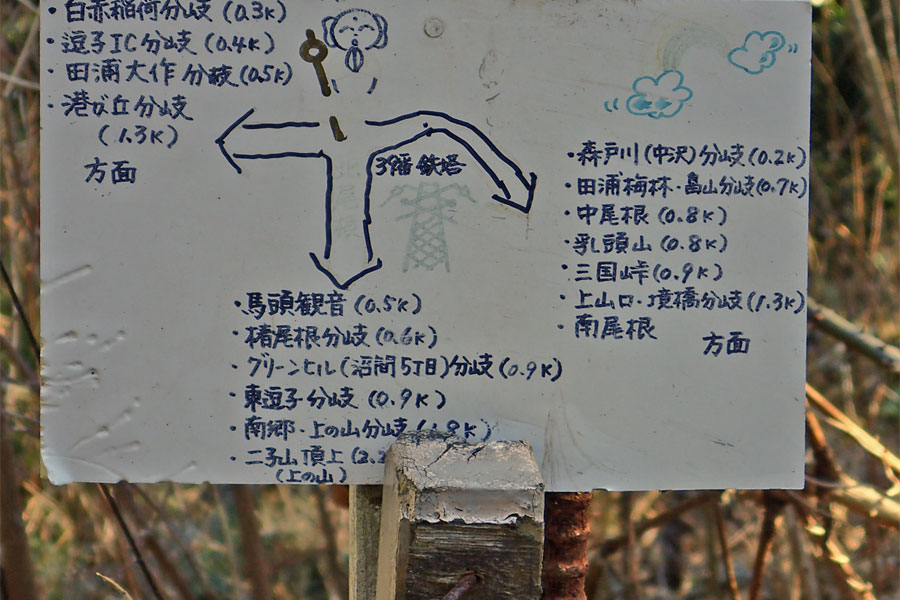 ・白赤稲荷分岐(0.3K)
・逗子IC分岐(0.4K)
・田浦大作分岐(0.5K)
・港が丘分岐
(1.3K)
方面
3番鉄塔
・森戸川(中沢)分岐(0.2K)
・田浦梅林・畠山分岐(0.7K)
・中尾根(0.8K)
・乳頭山(0.8K)
・三国峠(0.9K)
・上山口・境橋分岐(1.3K)
・南尾根
方面
・馬頭観音(0.5K)
・楮尾根分岐(0.6K)
・グリーンヒル(沼間5丁目)分岐(0.9K)
・東逗子分岐(0.9K)
・南郷・上の山分岐(1.8K)
・二子山頂上(2.2
(上の山)